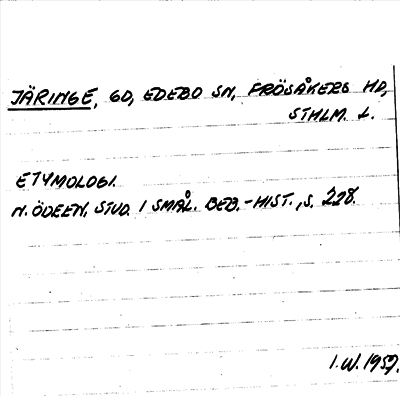 JÄRINGE, GD, EDEBO SN, FRÖSÅKERS HD,
STHLM. L.
ETYMOLOGI.
N. ÖDEEN, STUD. I SMÅL. BEB.-HIST., S. 228.
I.W. 1957.